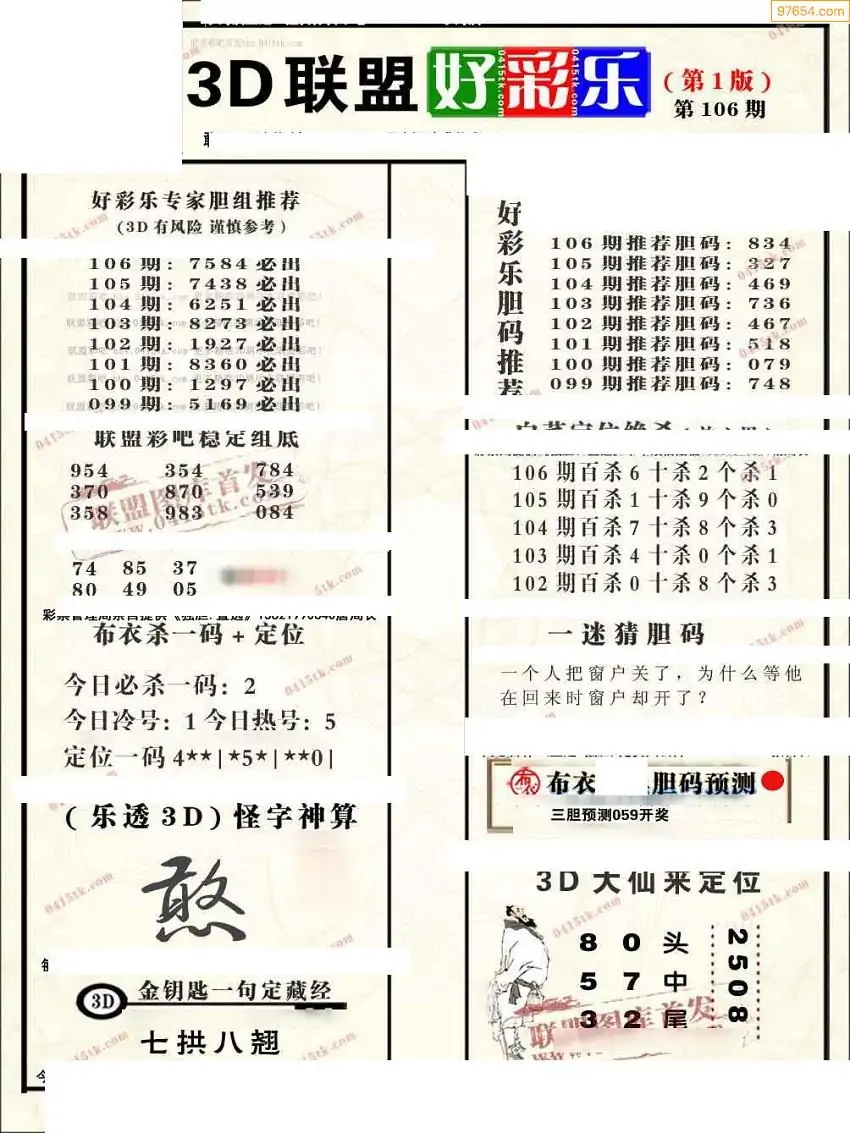 97654.com
3D联盟好彩乐
(第1版)
第106期
好彩乐专家胆组推荐
(3D有风险 谨慎参考)
106期: 7584必出
105期: 7438必出
104期: 6251必出
103期: 8273必出
102期: 1927必出
101期: 8360必出
100期: 1297必出
099期: 5169必出
联盟彩吧稳定组底
954 354 784
370 870 539
358 983 084
74 85 37
80 49 05
布衣杀一码+定位
今日必杀一码: 2
今日冷号: 1 今日热号: 5
定位一码 4**|*5*|**0|
(乐透3D) 怪字神算
憨
3D
金钥匙一句定藏经
七拱八翘
好彩乐胆码推荐
106期推荐胆码: 834
105期推荐胆码: 327
104期推荐胆码: 469
103期推荐胆码: 736
102期推荐胆码: 467
101期推荐胆码: 518
100期推荐胆码: 079
099期推荐胆码: 748
106期百杀6十杀2个杀1
105期百杀1十杀9个杀0
104期百杀7十杀8个杀3
103期百杀4十杀0个杀1
102期百杀0十杀8个杀3
一迷猜胆码
一个人把窗户关了，为什么等他
在回来时窗户却开了？
布衣
胆码预测
三胆预测059开奖
3D大仙来定位
8 0 头
5 7 中
3 2 尾
2508
联盟图库首发
www.0415tk.com
0415tk.com